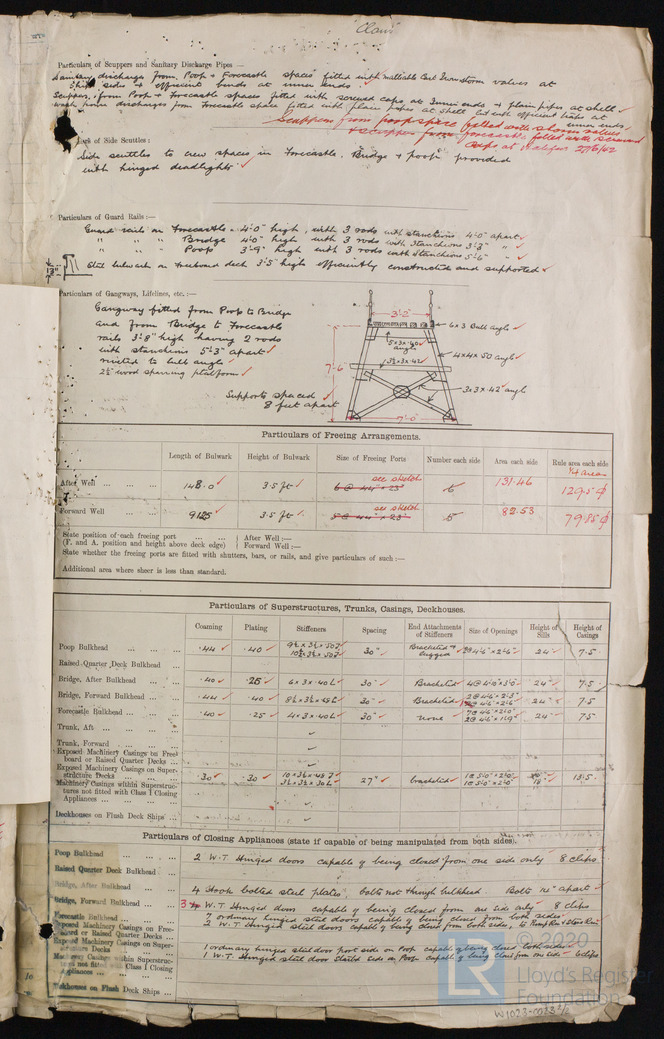 Particulars of Scuppers and Sanitary Discharge Pipes —
Sanitary discharges from Poop & Forecastle spaces fitted with malleable Cast Iron storm valves at
Ship sides & efficient bends at inner ends.
Scuppers from Poop & Forecastle spaces fitted with screwed caps at Inner ends & plain pipes at shell
wash from discharges from Forecastle space fitted with plain pipes at shell but with efficient traps at
inner ends
Scuppers from poop space fitted with storm valves
& scupper from forecastle fitted with screwed
caps at Halifax 27/6/42
of Side Scuttles :
Side scuttles to crew spaces in Forecastle, Bridge & poop provided
with hinged deadlights
Particulars of Guard Rails :—
Guard rails on Forecastle - 4'-0" high, with 3 rods with stanchions 4'-0" apart
" " " Bridge 4'-0" high with 3 rods with stanchions 3'-3" "
" " " Poop 3'-9" high with 3 rods with stanchions 5'-6" "
Steel bulwark on freeboard deck 3'-5" high efficiently constructed and supported
Particulars of Gangways, Lifelines, etc. :—
Gangway fitted from Poop to Bridge
and from Bridge to Forecastle
rails 3'-8" high having 2 rods
with stanchions 5'-3" apart
riveted to bulb angle
2½" wood sparring platform
Supports spaced
8 feet apart
3'-2"
6 x 3 Bulb angle
5 x 3 x .40 angle
4 x 4 x .50 angle
7'-6"
3 x 3 x .42 angle
7'-0"
Particulars of Freeing Arrangements.
Length of Bulwark Height of Bulwark Size of Freeing Ports Number each side Area each side Rule area each side
¾ areas
After Well 148.0 3.5 ft see sketch 6 @ 44" x 23" 6 131.46 129.5
Forward Well 91.25 3.5 ft see sketch 5 @ 44" x 23" 5 82.53 79.85
State position of each freeing port (F. and A. position and height above deck edge) After Well :—
Forward Well :—
State whether the freeing ports are fitted with shutters, bars, or rails, and give particulars of such :—
Additional area where sheer is less than standard.
Particulars of Superstructures, Trunks, Casings, Deckhouses.
Coaming Plating Stiffeners Spacing End Attachments of Stiffeners Size of Openings Height of Sills Height of Casings
Poop Bulkhead .44 .40 30" Bracketed 24" 7.5
Raised Quarter Deck Bulkhead
Bridge, After Bulkhead .40 .25 6 x 3 x .40 L 30" Bracketed 4 @ 4'0" x 3'0" 24" 7.5
Bridge, Forward Bulkhead .44 .40 30" Bracketed 24" 7.5
Forecastle Bulkhead .40 .25 4 x 3 x .40 L 30" none 24" 7.5
Trunk, Aft
Trunk, Forward
Exposed Machinery Casings on Freeboard or Raised Quarter Decks
Exposed Machinery Casings on Superstructure Decks .30 .30 27" bracketed 18" 13.5
Machinery Casings within Superstructures not fitted with Class I Closing Appliances
Deckhouses on Flush Deck Ships
Particulars of Closing Appliances (state if capable of being manipulated from both sides).
Poop Bulkhead 2 W.T Hinged doors capable of being closed from one side only 8 clips
Raised Quarter Deck Bulkhead
Bridge, After Bulkhead 4 Hook bolted steel plates, bolts not through bulkhead. Bolts 12" apart
Bridge, Forward Bulkhead 3 W.T Hinged doors capable of being closed from one side only 8 clips
Forecastle Bulkhead 7 ordinary hinged steel doors capable of being closed from both sides.
2 W.T Hinged steel doors capable of being closed from both sides, to Pump Rm & Store Rm
Exposed Machinery Casings on Freeboard or Raised Quarter Decks
Exposed Machinery Casings on Superstructure Decks 1 ordinary hinged steel door port side on Poop capable of being closed both sides
1 W.T Hinged steel door Starbd side on Poop capable of being closed from one side 6 clips
Machinery Casings within Superstructures not fitted with Class I Closing Appliances
Deckhouses on Flush Deck Ships
© 2020
LR
Lloyd's Register
Foundation